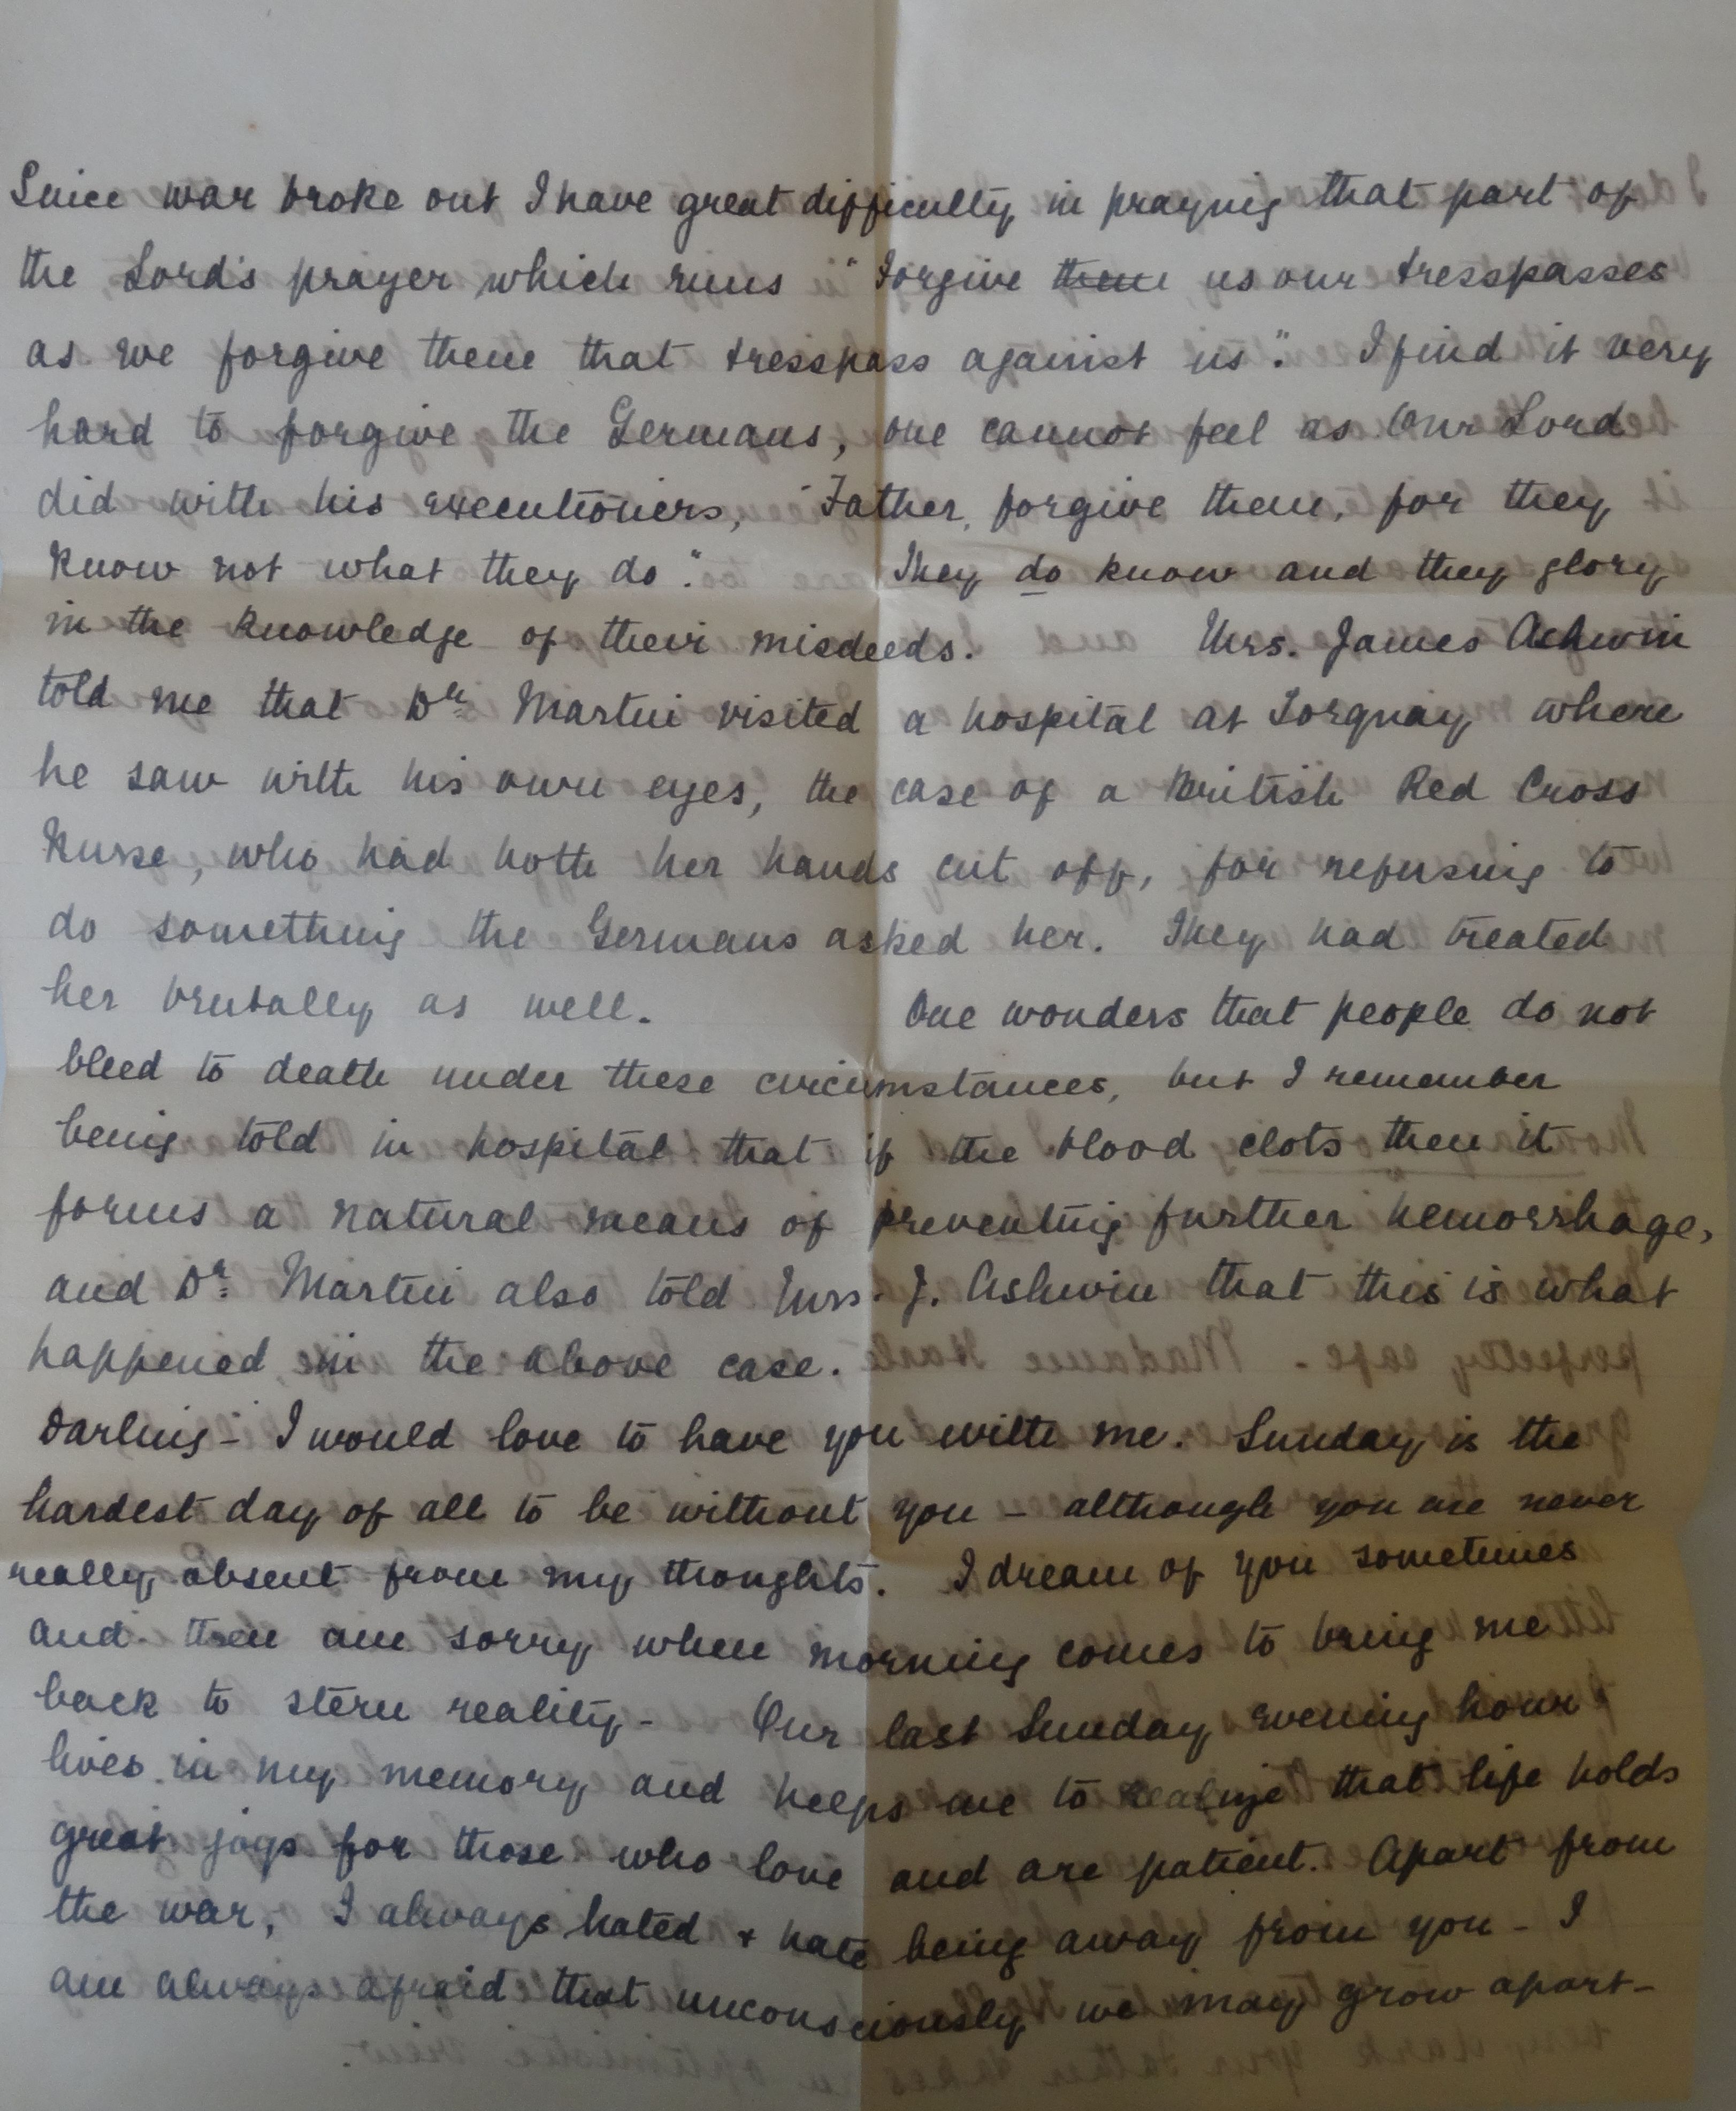 Since war broke out I have great difficulty in praying that part of
the Lord's prayer which runs "Forgive them us our tresspasses
as we forgive them that tresspass against us". I find it very
hard to forgive the Germans, one cannot feel as Our Lord
did with his executioners, "Father, forgive them, for they
know not what they do". They do know and they glory
in the knowledge of their misdeeds. Mrs. James Ashwin
told me that Dr. Martin visited a hospital at Torquay where
he saw with his own eyes, the case of a British Red Cross
Nurse, who had both her hands cut off, for refusing to
do something the Germans asked her. They had treated
her brutally as well. One wonders that people do not
bleed to death under these circumstances, but I remember
being told in hospital that if the blood clots then it
forms a natural means of preventing further hemorrhage,
and Dr. Martin also told Mrs. J. Ashwin that this is what
happened in the above case.
Darling - I would love to have you with me. Sunday is the
hardest day of all to be without you - although you are never
really absent from my thoughts. I dream of you sometimes
and then am sorry when morning comes to bring me
back to stern reality - Our last Sunday evening hour
lives in my memory and helps me to realize that life holds
great joys for those who love and are patient. Apart from
the war, I always hated + hate being away from you - I
am always afraid that unconsciously we may grow apart -